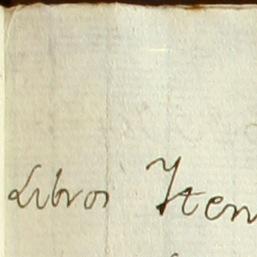 Libros Item